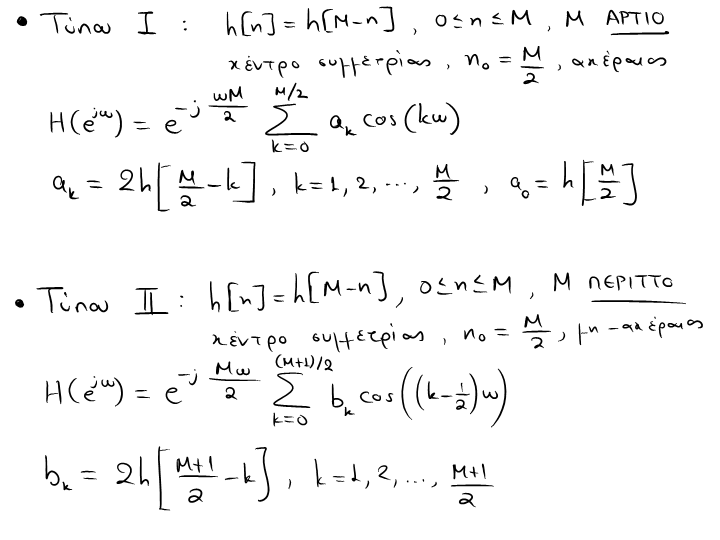 • Τύπου I : h[n] = h[M-n] , 0 ≤ n ≤ M , M ΑΡΤΙΟ
κέντρο συμμετρίας , n₀ = M/2 , ακέραιος
H(e^{jω}) = e^{-j ωM/2} Σ_{k=0}^{M/2} a_k cos(kω)
a_k = 2h[M/2 - k] , k = 1, 2, ..., M/2 , a₀ = h[M/2]
• Τύπου II : h[n] = h[M-n] , 0 ≤ n ≤ M , M ΠΕΡΙΤΤΟ
κέντρο συμμετρίας , n₀ = M/2 , μη-ακέραιος
H(e^{jω}) = e^{-j Mω/2} Σ_{k=0}^{(M+1)/2} b_k cos((k - 1/2)ω)
b_k = 2h[(M+1)/2 - k] , k = 1, 2, ..., (M+1)/2